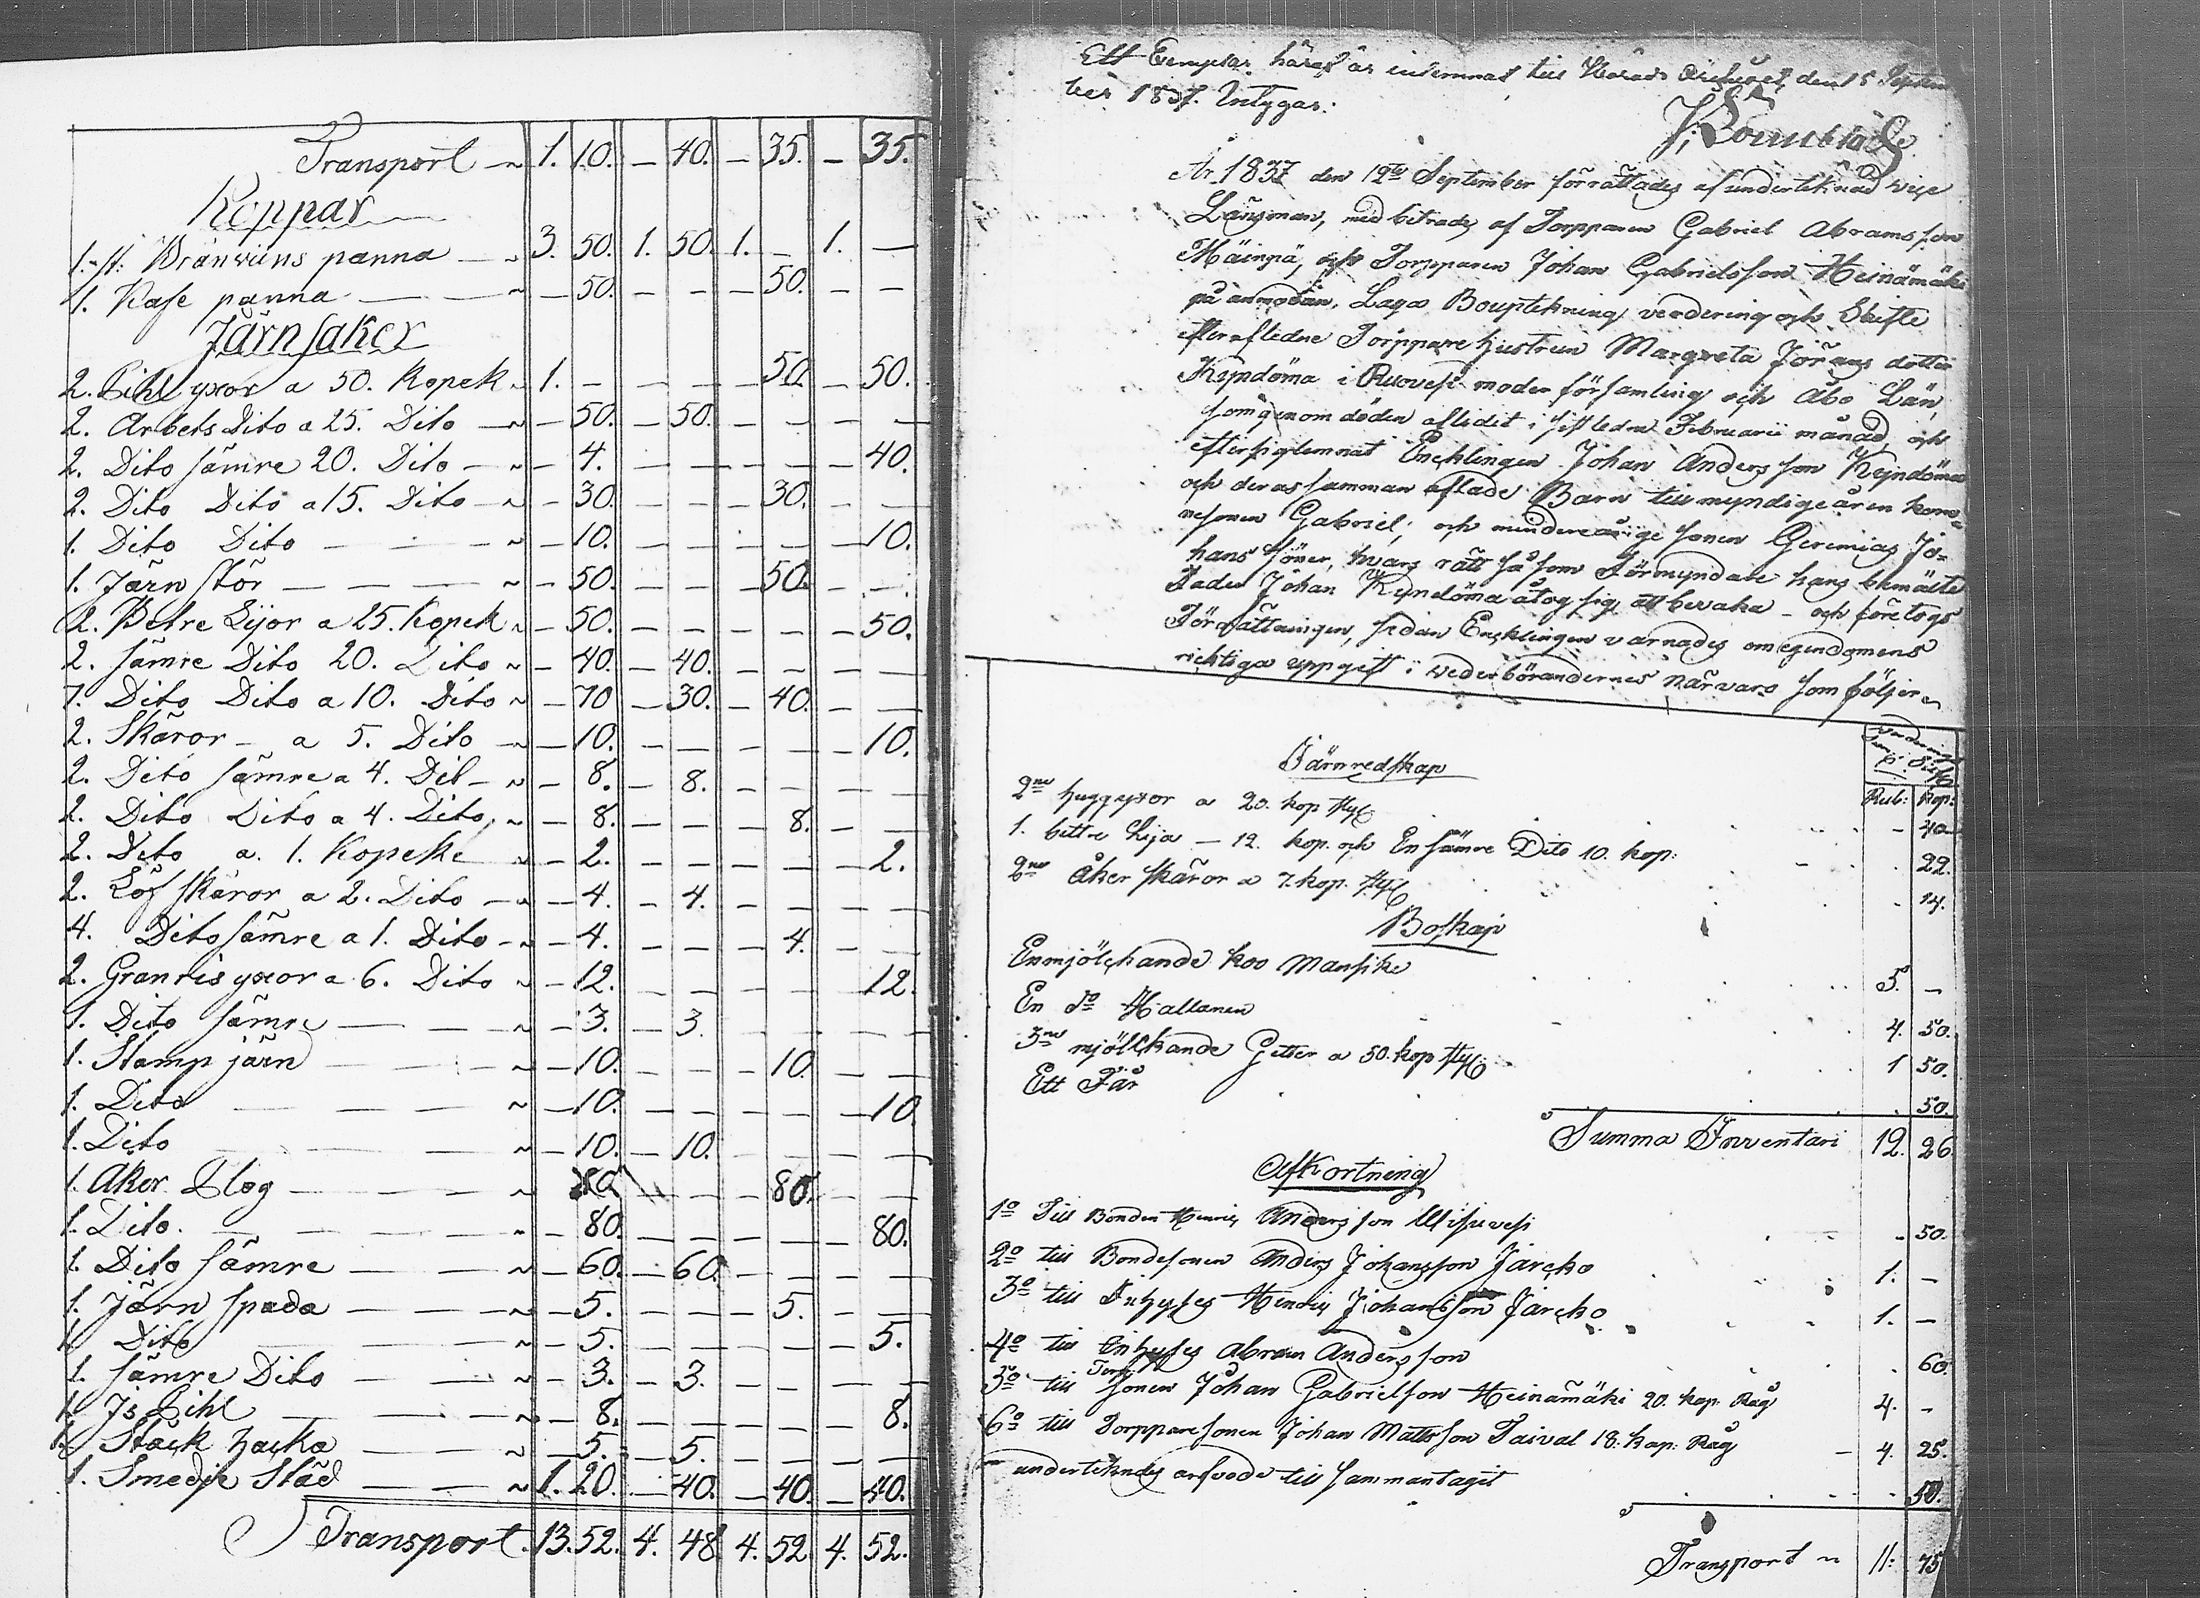 Transport 1. 10. – 40. – 35. – 35.
Koppar
1. st: Bränwins panna 3. 50. 1. 50. 1. – 1. –
1. Kafe panna – 50. – – – 50. – –
Järnsaker
2. Pihl yxor a 50. Kopek 1. – – – – 50. – 50.
2. Arbets Dito a 25. Dito – 50. – 50. – – – –
2. Dito sämre 20. Dito – 4. – – – – – 40.
2. Dito Dito a 15. Dito – 30. – – – 30. – –
1. Dito Dito – 10. – – – – – 10.
1. Järn Stör – 50. – – – 50. – –
2. Betre Lijor a 25. Kopek – 50. – – – – – 50.
2. sämre Dito 20. Dito – 40. – 40. – – – –
7. Dito Dito a 10. Dito – 70 – 30. – 40. – –
2. Skäror – a 5. Dito – 10. – – – – – 10.
2. Dito sämre a 4. Dit – 8. – 8. – – – –
2. Dito Dito a 4. Dito – 8. – – – 8. – –
2. Dito a. 1. Kopek – 2. – – – – – 2.
2. Löf skäror a 2. Dito – 4. – 4. – – – –
4. Dito sämre a 1. Dito – 4. – – – 4. – –
2. Granris yxor a 6. Dito – 12. – – – – – 12.
1. Dito sämre – 3. – 3. – – – –
1. Stamp järn – 10. – – – 10. – –
1. Dito – 10. – – – – – 10.
1. Dito – 10. – 10. – – – –
1. Åker Plog 80. – – – 80. – –
1. Dito. – 80. – – – – – 80.
1. Dito sämre – 60. – 60. – – – –
1. Järn spada – 5. – – – 5. – –
1. Dito – 5. – – – – – 5.
1. sämre Dito – 3. – 3. – – – –
1. Js Pihl – 8. – – – – – 8.
1. Stäck hacka – 5. – 5. – – – –
1. Smedje Städ 1. 20. – 40. – 40. – 40.
Transport. 13. 52. 4. 48. 4. 52. 4. 52.
Ett Exemplar häraf är inlemnat till Härads Archivet, den 15 Septem
ber 1837. Intygar:
År 1837 den 12te September förrättades af undertecknad vice
Länsman, med biträde af Torpparen Gabriel Abramsson
Mäinpä, och Torpparen Johan Gabrielsson Heinämäki
på anmodan, Laga Bouptekning värdering och Skifte
efter aflidne Torppare hustrun Margreta Jörans dotter
Kyndöma i Ruovesi moder församling och Åbo Län,
som genom döden aflidit i sistledne Februarii månad, och
efterlemnat Encklingen Johan Andersson Kyndöma
och deras samman aflade Barn till myndige åren kom=
ne sonen Gabriel; och minderårige sonen Geremias Jo=
hans söner, hvars rätt såsom Förmyndare hans bemälte
Fader Johan Kyndöma åtog sig att bevaka – och företogs
Förrättningen, sedan Encklingen varnades om egendomens
richtiga uppgift i wederbörandernes närvaro som följer
Värdering
Rub: Kop:
Järnredskap
2ne huggyxor a 20. kop styc – 40
1. bettre Lija – 12. kop. och En sämre Dito 10. kop: 22.
2ne Åker skäror a 7. kop. styc 14.
Boskap
En mjölckande koo Mansike 5. –
En do Hallanen 4. 50.
3ne mjölckande Getter a 50. kop styc 1 50.
Ett Får 50.
Summa Inventari 12. 26
Afkortning
1o Till Bonden Henric Andersson Wisuvesi 50.
2o till Bondesonen Anders Johansson Järcko 1. –
3o till Inhyses Henric Johansson Järcko 1. –
4o till Inhyses Abram Andersson 60.
5o till Torp sonen Johan Gabrielsson Heinämäki 20. kap. Råg 4. –
6o till Torpparesonen Johan Mattsson Taival 18. kap: Råg 4. 25.
undertecknades arfvode till sammantagit 50.
Transport 11: 75